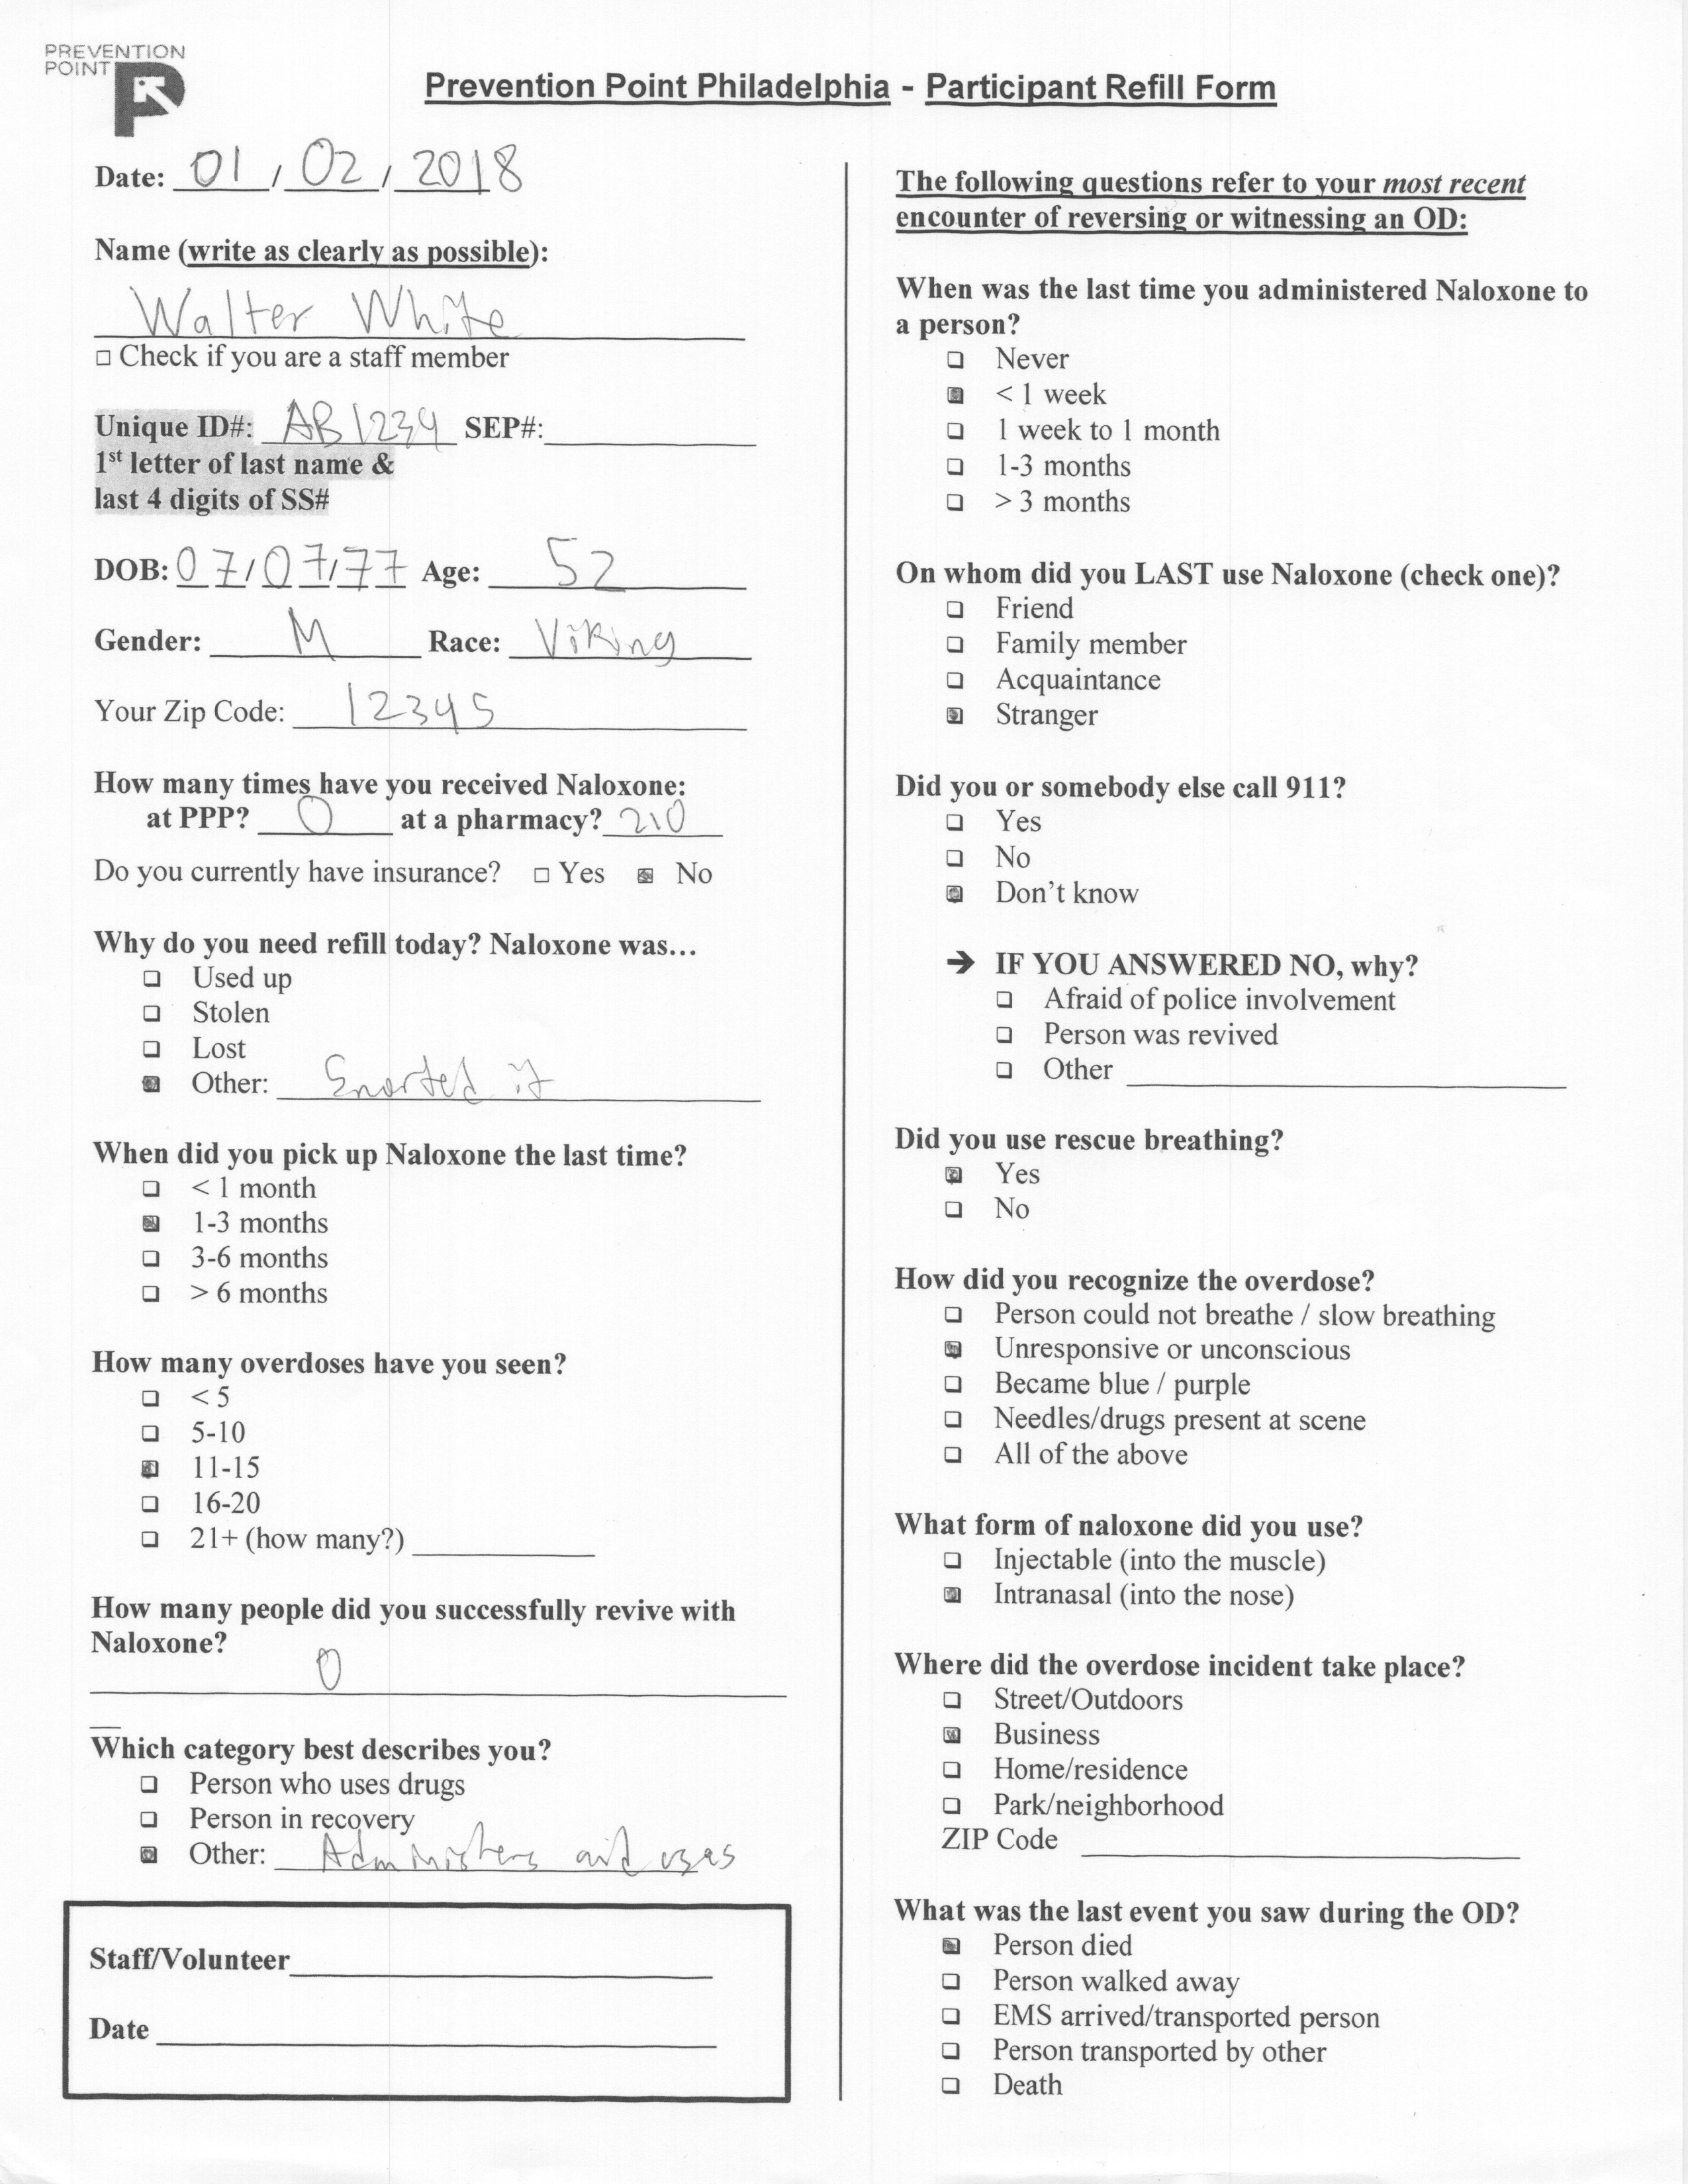 PREVENTION
POINT
Prevention Point Philadelphia - Participant Refill Form
Date: 01/02/2018
Name (write as clearly as possible):
Walter White
□ Check if you are a staff member
Unique ID#: AB1234 SEP#:
1st letter of last name &
last 4 digits of SS#
DOB: 07/07/77 Age: 52
Gender: M Race: Viking
Your Zip Code: 12345
How many times have you received Naloxone:
at PPP? 0 at a pharmacy? 210
Do you currently have insurance? □ Yes ■ No
Why do you need refill today? Naloxone was...
□ Used up
□ Stolen
□ Lost
■ Other: Snorted it
When did you pick up Naloxone the last time?
□ < 1 month
■ 1-3 months
□ 3-6 months
□ > 6 months
How many overdoses have you seen?
□ < 5
□ 5-10
■ 11-15
□ 16-20
□ 21+ (how many?)
How many people did you successfully revive with
Naloxone?
0
Which category best describes you?
□ Person who uses drugs
□ Person in recovery
■ Other: Administers and uses
Staff/Volunteer
Date
The following questions refer to your most recent
encounter of reversing or witnessing an OD:
When was the last time you administered Naloxone to
a person?
□ Never
■ < 1 week
□ 1 week to 1 month
□ 1-3 months
□ > 3 months
On whom did you LAST use Naloxone (check one)?
□ Friend
□ Family member
□ Acquaintance
■ Stranger
Did you or somebody else call 911?
□ Yes
□ No
■ Don't know
→ IF YOU ANSWERED NO, why?
□ Afraid of police involvement
□ Person was revived
□ Other
Did you use rescue breathing?
■ Yes
□ No
How did you recognize the overdose?
□ Person could not breathe / slow breathing
■ Unresponsive or unconscious
□ Became blue / purple
□ Needles/drugs present at scene
□ All of the above
What form of naloxone did you use?
□ Injectable (into the muscle)
■ Intranasal (into the nose)
Where did the overdose incident take place?
□ Street/Outdoors
■ Business
□ Home/residence
□ Park/neighborhood
ZIP Code
What was the last event you saw during the OD?
■ Person died
□ Person walked away
□ EMS arrived/transported person
□ Person transported by other
□ Death